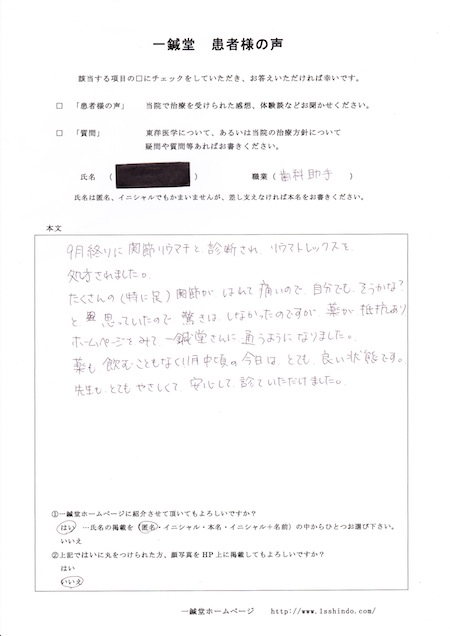 一鍼堂 患者様の声
該当する項目の□にチェックをしていただき、お答えいただければ幸いです。
□ 「患者様の声」 当院で治療を受けられた感想、体験談などお聞かせください。
□ 「質問」 東洋医学について、あるいは当院の治療方針について
疑問や質問等あればお書きください。
氏名 ( ) 職業 ( 歯科助手 )
氏名は匿名、イニシャルでもかまいませんが、差し支えなければ本名をお書きください。
本文
9月終りに関節リウマチと診断され リウマトレックスを
処方されました。
たくさんの(特に足)関節がはれて痛いので、自分でもそうかな?
と思っていたので驚きはしなかったのですが 薬が抵抗あり
ホームページをみて一鍼堂さんに通うようになりました。
薬も飲むこともなく11月中頃の今日は、とても良い状態です。
先生も、とてもやさしくて、安心して診ていただけました。
①一鍼堂ホームページに紹介させて頂いてもよろしいですか?
はい …氏名の掲載を(匿名・イニシャル・本名・イニシャル+名前)の中からひとつお選び下さい。
いいえ
②上記ではいに丸をつけられた方、顔写真を HP 上に掲載してもよろしいですか?
はい
いいえ
一鍼堂ホームページ http://www.1sshindo.com/